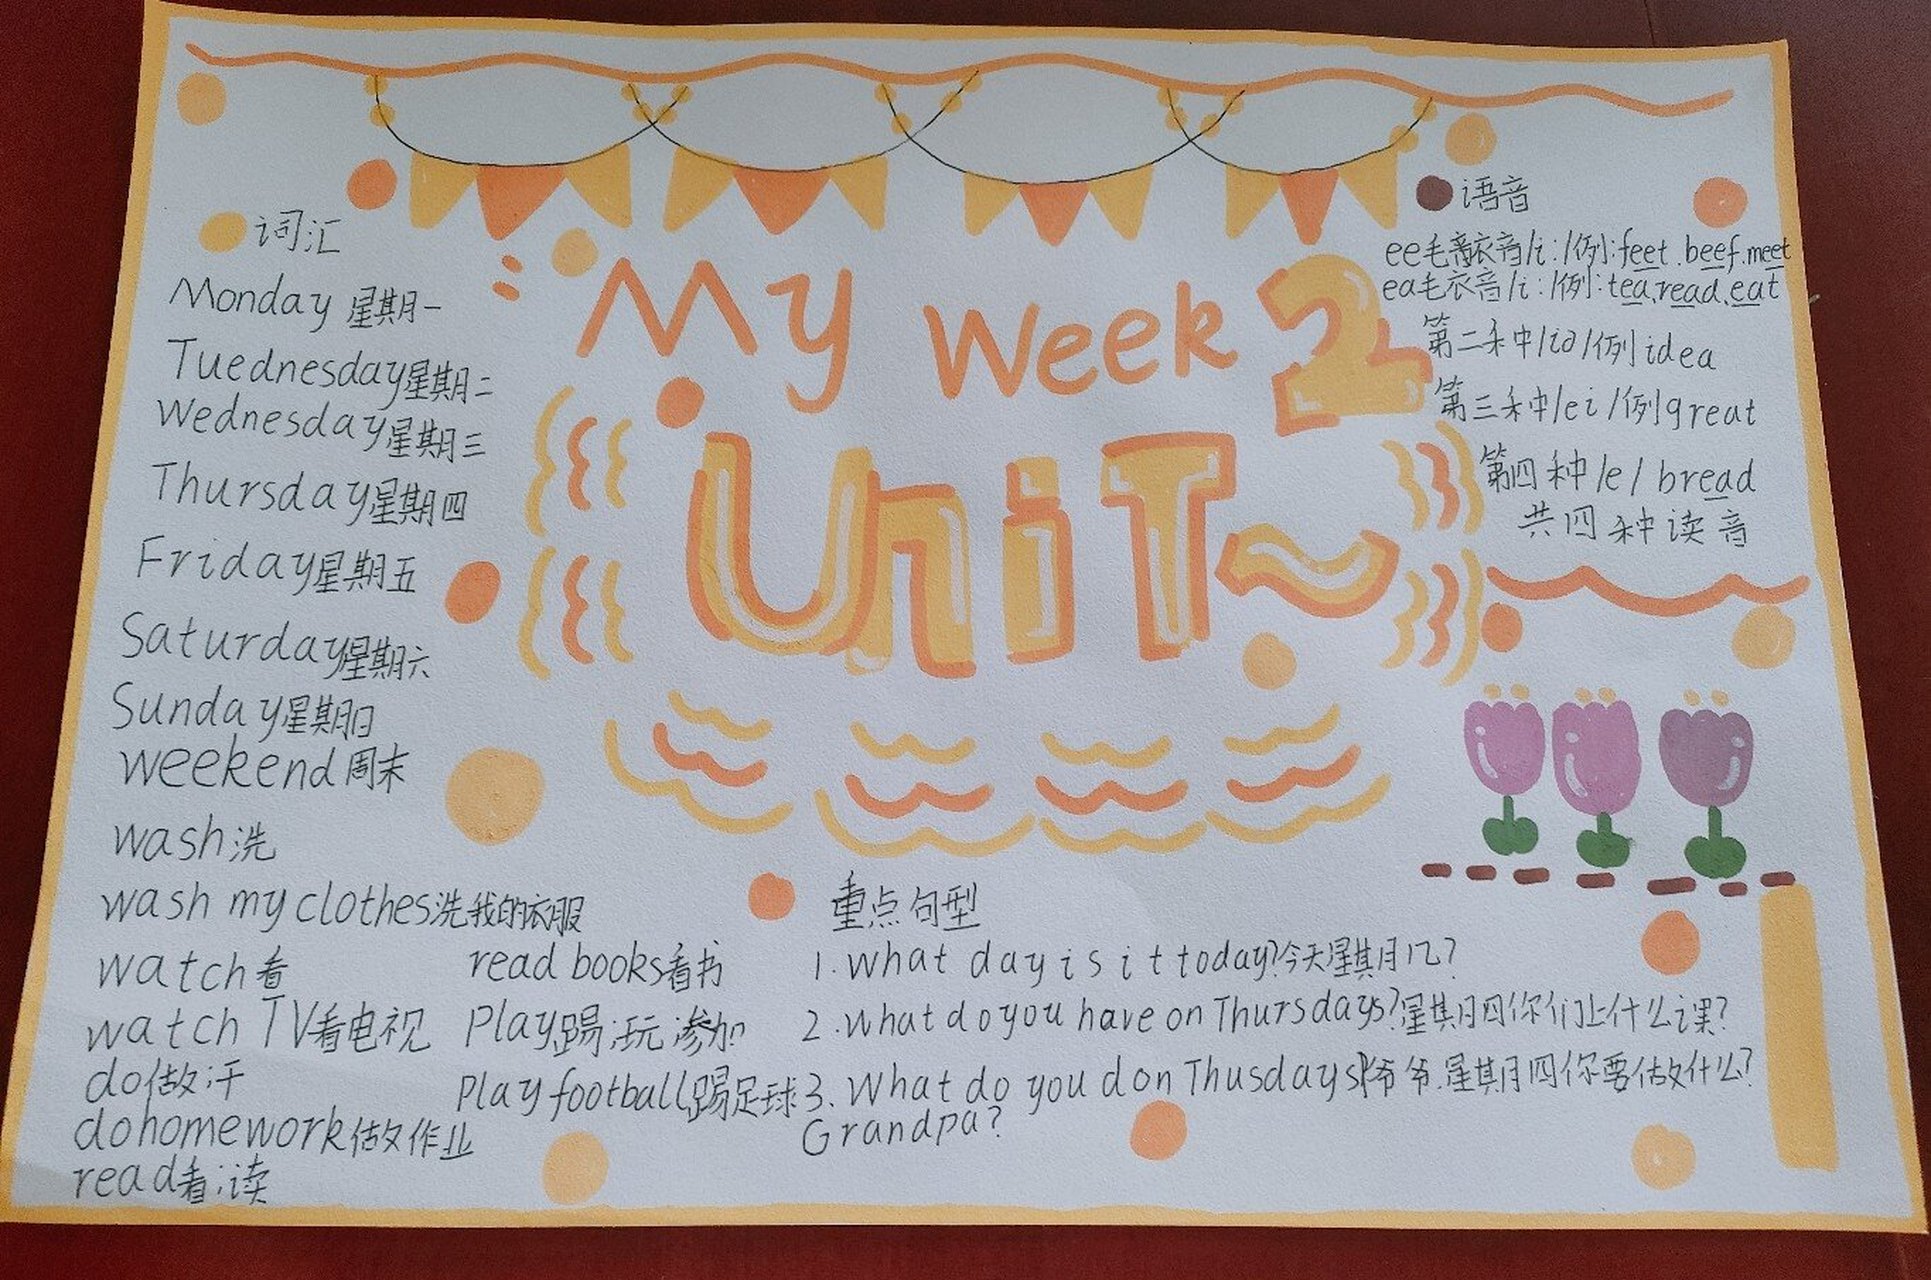 My Week 2
Unit
词汇
Monday 星期一
Tuednesday星期二
Wednesday星期三
Thursday星期四
Friday星期五
Saturday星期六
Sunday星期日
weekend周末
wash洗
wash my clothes洗我的衣服
watch看
watch TV看电视
do做;干
do homework做作业
read看;读
read books看书
Play踢;玩;参加
Play football踢足球
语音
ee毛衣音/i:/例:feet.beef.meet
ea毛衣音/i:/例:tea.read.eat
第二种/iə/例idea
第三种/ei/例great
第四种/e/bread
共四种读音
重点句型
1.What day is it today?今天星期几?
2.What do you have on Thursdays?星期四你们上什么课?
3.What do you do on Thusdays爷爷.星期四你要做什么?
Grandpa?